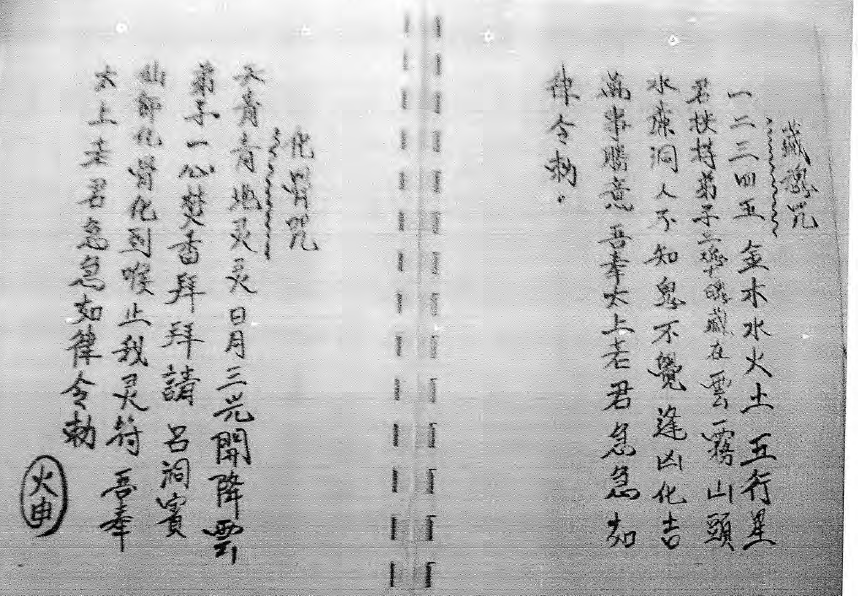 藏魂咒
一二三四五 金木水火土 五行星
君扶持弟子三魂七魄藏在雲霧山頭
水簾洞人不知鬼不覺逢凶化吉
萬事勝意吾奉太上老君急急如
律令勅。
化骨咒
天青青地灵灵日月三光開降雲
弟子一心焚香拜拜請呂洞賓
仙師化骨化到喉止我灵符吾奉
太上老君急急如律令勅
火申